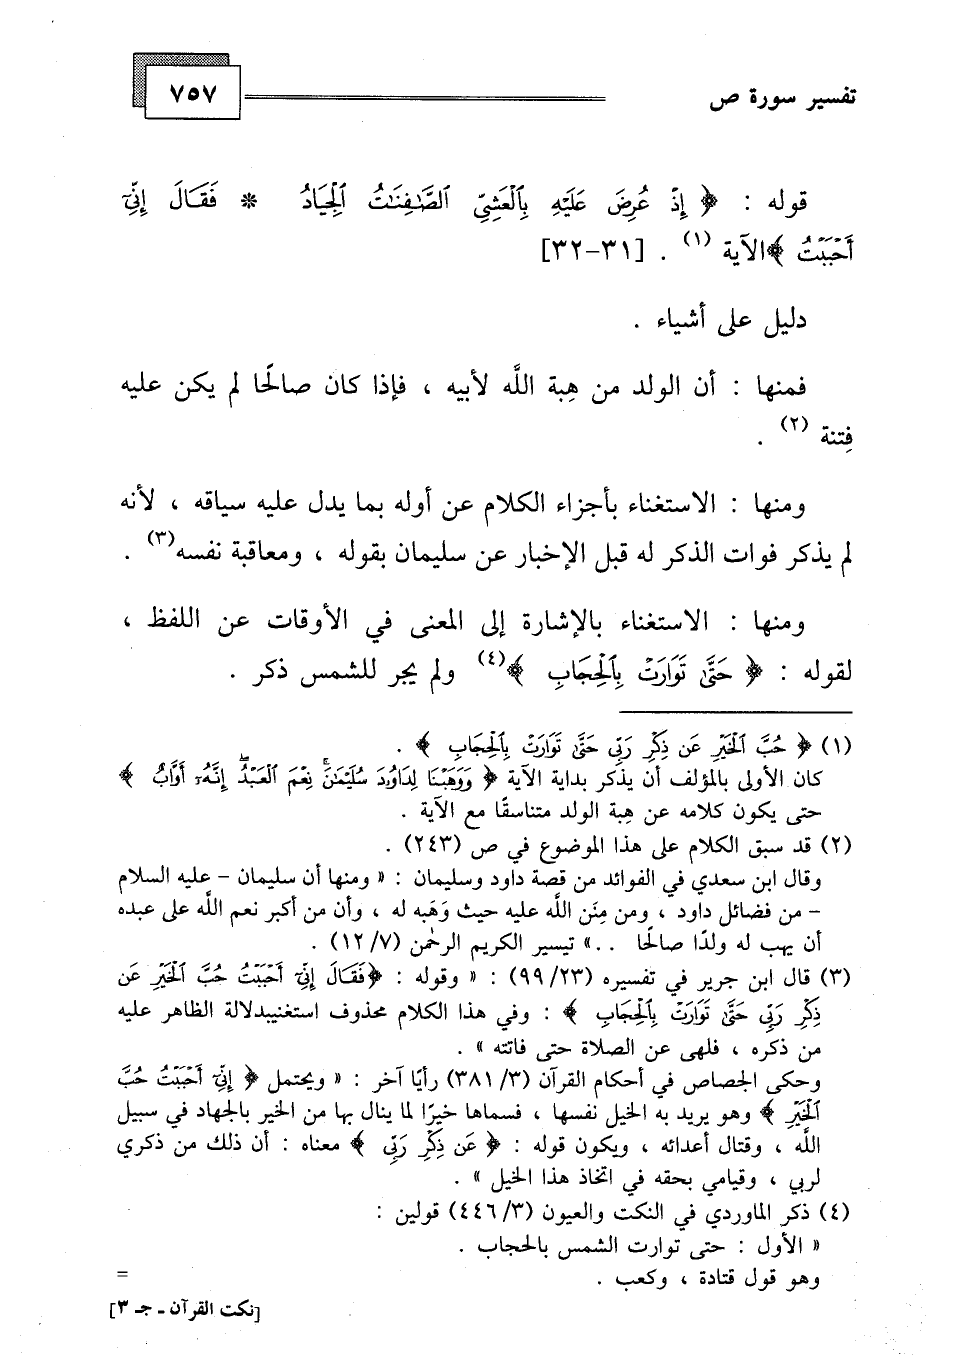 تفسير سورة ص
٧٥٧
قوله : ﴿ إِذْ عُرِضَ عَلَيْهِ بِالْعَشِيِّ الصَّافِنَاتُ الْجِيَادُ * فَقَالَ إِنِّي
أَحْبَبْتُ ﴾ الآية (١) . [٣١-٣٢]
دليل على أشياء .
فمنها : أن الولد من هِبة اللَّه لأبيه ، فإذا كان صالحًا لم يكن عليه
فِتنة (٢) .
ومنها : الاستغناء بأجزاء الكلام عن أوله بما يدل عليه سياقه ، لأنه
لم يذكر فوات الذكر له قبل الإخبار عن سليمان بقوله ، ومعاقبة نفسه(٣) .
ومنها : الاستغناء بالإشارة إلى المعنى في الأوقات عن اللفظ ،
لقوله : ﴿ حَتَّىٰ تَوَارَتْ بِالْحِجَابِ ﴾(٤) ولم يجر للشمس ذكر .
(١) ﴿ حُبَّ الْخَيْرِ عَن ذِكْرِ رَبِّي حَتَّىٰ تَوَارَتْ بِالْحِجَابِ ﴾ .
كان الأولى بالمؤلف أن يذكر بداية الآية ﴿ وَوَهَبْنَا لِدَاوُدَ سُلَيْمَانَ ۚ نِعْمَ الْعَبْدُ ۖ إِنَّهُ أَوَّابٌ ﴾
حتى يكون كلامه عن هِبة الولد متناسقًا مع الآية .
(٢) قد سبق الكلام على هذا الموضوع في ص (٢٤٣) .
وقال ابن سعدي في الفوائد من قصة داود وسليمان : « ومنها أن سليمان – عليه السلام
– من فضائل داود ، ومن مِنَن اللَّه عليه حيث وَهَبه له ، وأن من أكبر نعم اللَّه على عبده
أن يهب له ولدًا صالحًا ..» تيسير الكريم الرحمٰن (١٢/٧) .
(٣) قال ابن جرير في تفسيره (٩٩/٢٣) : « وقوله : ﴿فَقَالَ إِنِّي أَحْبَبْتُ حُبَّ الْخَيْرِ عَن
ذِكْرِ رَبِّي حَتَّىٰ تَوَارَتْ بِالْحِجَابِ ﴾ : وفي هذا الكلام محذوف استغنيبدلالة الظاهر عليه
من ذكره ، فلهى عن الصلاة حتى فاتته » .
وحكى الجصاص في أحكام القرآن (٣٨١/٣) رأيًا آخر : « ويحتمل ﴿ إِنِّي أَحْبَبْتُ حُبَّ
الْخَيْرِ ﴾ وهو يريد به الخيل نفسها ، فسماها خيرًا لما ينال بها من الخير بالجهاد في سبيل
اللَّه ، وقتال أعدائه ، ويكون قوله : ﴿ عَن ذِكْرِ رَبِّي ﴾ معناه : أن ذلك من ذكري
لربي ، وقيامي بحقه في اتخاذ هذا الخيل » .
(٤) ذكر الماوردي في النكت والعيون (٤٤٦/٣) قولين :
« الأول : حتى توارت الشمس بالحجاب .
وهو قول قتادة ، وكعب . =
[نكت القرآن ـ جـ ٣]